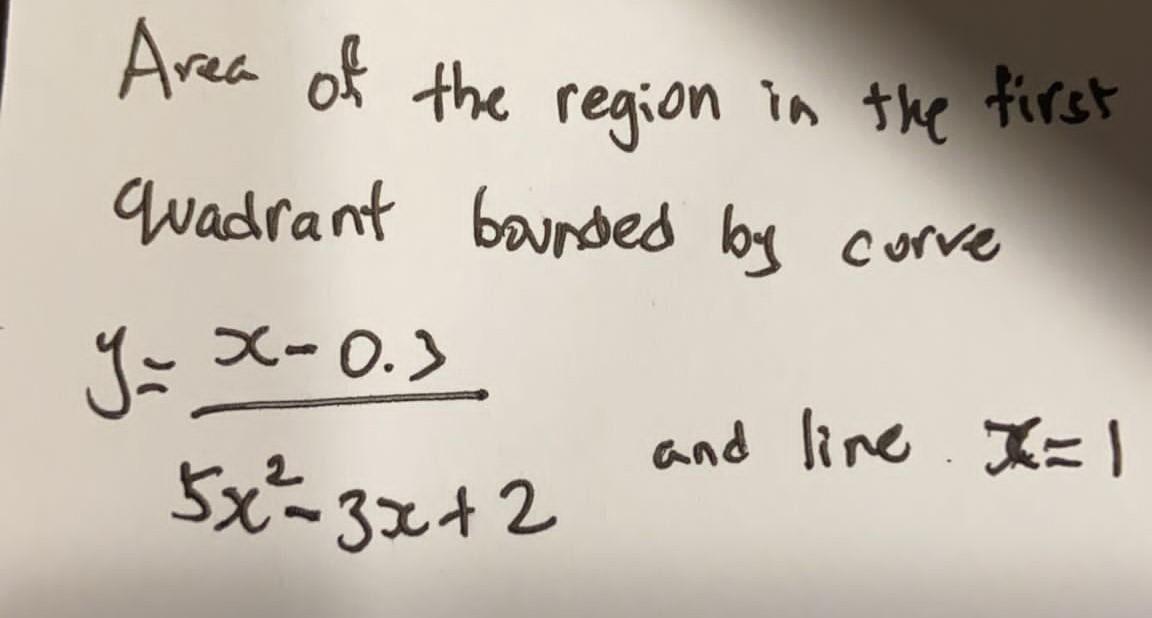 Area of the region in the first
quadrant bounded by curve
y = x - 0.3
5x² - 3x + 2 and line x = 1